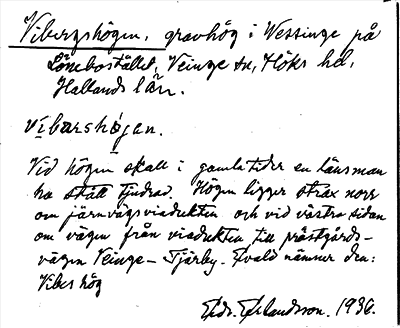 Vibergshögen, gravhög i Wessinge på
Lönebostället, Veinge sn, Höks hd,
Hallands län.
vibarshøgen.
Vid högen skall i gamla tider en länsman
ha stått tjudrad. Högen ligger strax norr
om järnvägsviadukten och vid västra sidan
om vägen från viadukten till prästgårds-
vägen Veinge - Tjärby. Ewald nämner den:
Vibes hög
Erlandsson. 1936.